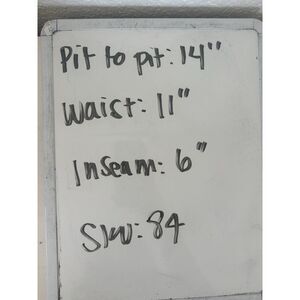 Pit to pit: 14"
Waist: 11"
Inseam: 6"
SKU: 84